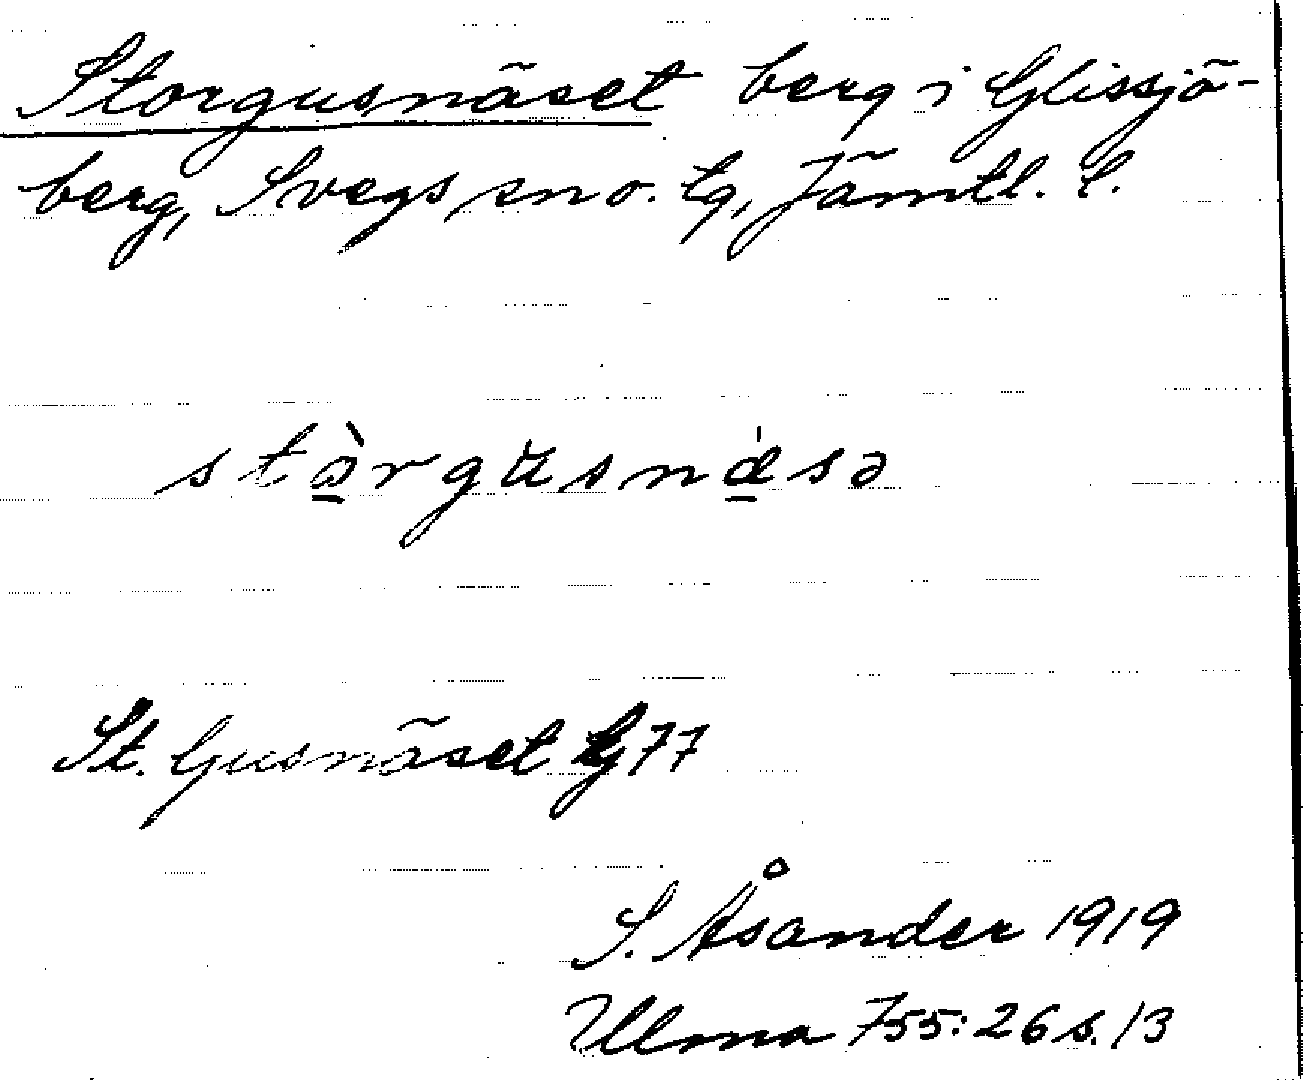 Storgusnäset berg i Glissjö-
berg, Svegs sno. tg, Jämtl. l.
stàrgusnásə
St. Gusnäset G77
S. Åsander 1919
Ulma 755:26 s. 13